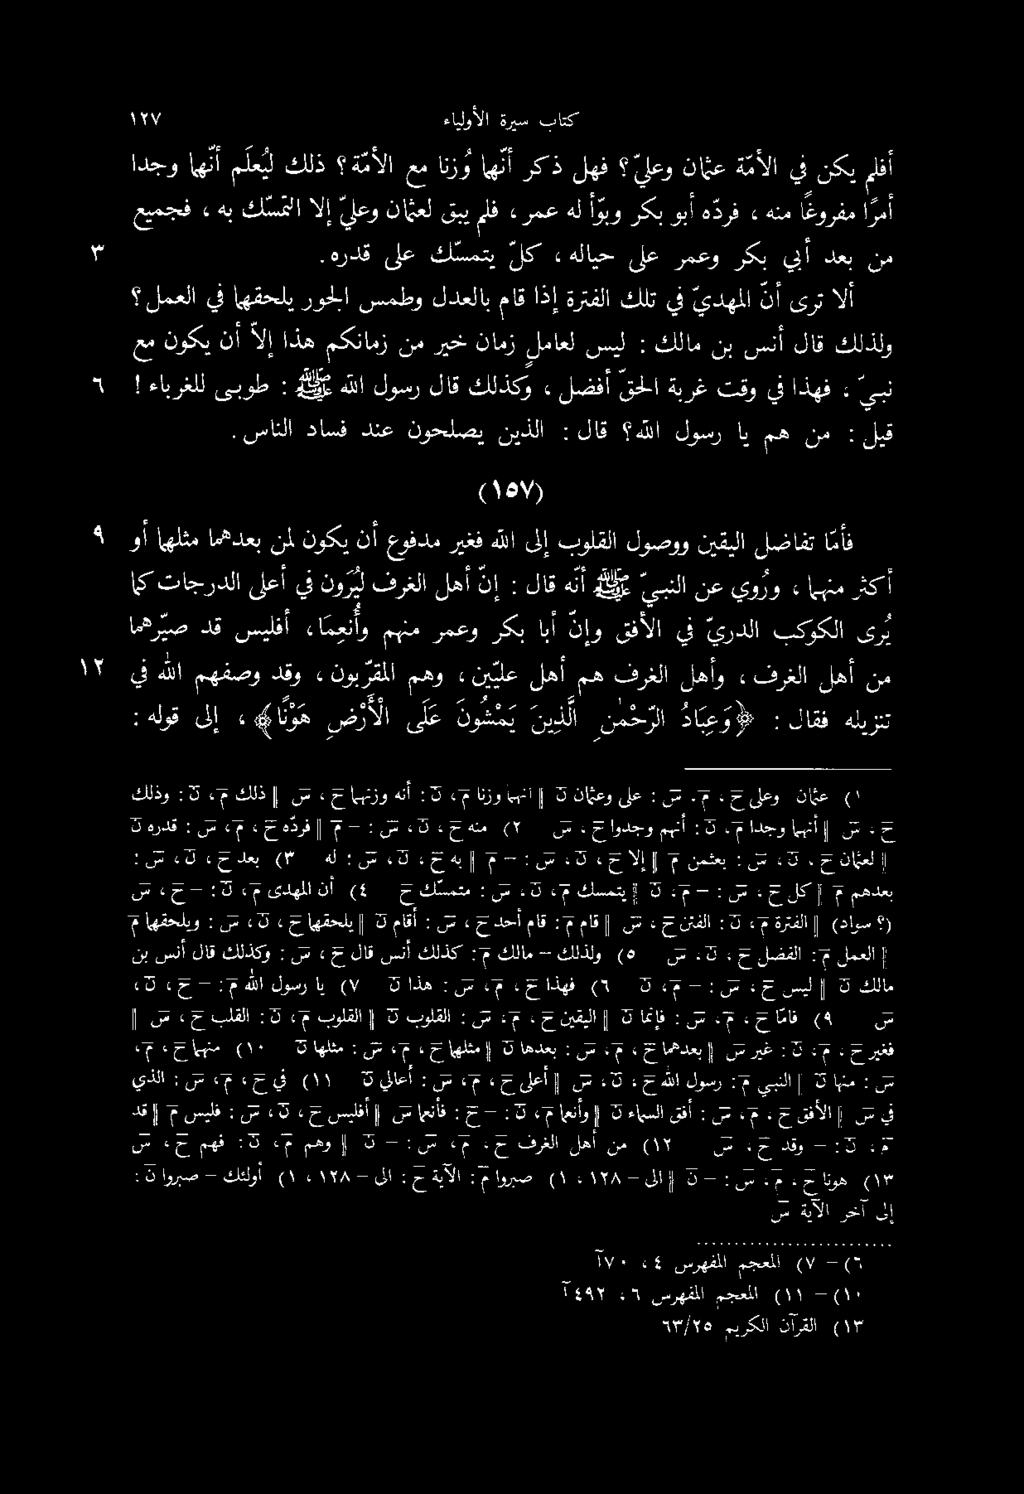 كتاب سيرة الأولياء ١٢٧
أفلم يكن في الأمّة عثمان وعليّ؟ فهل ذكر أنّهما وُزنا مع الأمّة؟ ذلك ليُعلَم أنّهما وجدا
أمرًا مفروغًا منه ، فردّه أبو بكر وبوّأ له عمر ، فلم يبق لعثمان وعليّ إلا التمسّك به ، فجميع
من بعد أبي بكر وعمر على حياله ، كلّ يتمسّك على قدره . ٣
ألا ترى أنّ المهديّ في تلك الفترة إذا قام بالعدل وطمس الجور يلحقهما في العمل؟
ولذلك قال أنس بن مالك : ليس لعامل زمان خير من زمانكم هذا إلاّ أن يكون مع
نبيّ ، فهذا في وقت غربة الحقّ أفضل ، وكذلك قال رسول الله ﷺ : طوبى للغرباء ! ٦
قيل : من هم يا رسول الله؟ قال : الذين يصلحون عند فساد الناس .
(١٥٧)
فأمّا تفاضل اليقين ووصول القلوب إلى الله فغير مدفوع أن يكون لمن بعدهما مثلهما أو ٩
أكثر منهما ، ورُوي عن النبيّ ﷺ أنّه قال : إنّ أهل الغرف ليُرَون في أعلى الدرجات كما
يُرى الكوكب الدريّ في الأفق وإنّ أبا بكر وعمر منهم وأُنعِمَا، أفليس قد صيّرهما
من أهل الغرف ، وأهل الغرف هم أهل عليّين، وهم المقرّبون، وقد وصفهم الله في ١٢
تنزيله فقال : ﴿وَعِبَادُ الرَّحْمٰنِ الَّذِينَ يَمْشُونَ عَلَى الْأَرْضِ هَوْنًا﴾ ، إلى قوله :
١) عثمان وعلى ح ، م ، س : على وعثمان ن || انهما وزنا م ، ن : أنه وزنهما ح ، س || ذلك م ، ن : وذلك
ح ، س || أنهما وجدا م ، ن : أنهم وجدوا ح ، س ٢) منه ح ، ن ، س : – م || فردّه ح ، م ، س : قدره ن
|| لعثمان ح ، ن ، س : بعثمن م || إلا ح ، ن ، س : – م || به ح ، ن ، س : له ٣) بعد ح ، ن ، س :
بعدهم م || كل ح ، س : – م ، ن || يتمسك م ، ن ، س : متمسّك ح ٤) أن المهدى م ، ن : – ح ، س
(؟ سواد) || الفترة م ، ن : الفتن ح ، س || قام م : قام أحد ح ، س : أقام ن || يلحقهما ح ، ن ، س : ويلحقهما م
|| العمل م : الفضل ح ، ن ، س ٥) ولذلك – مالك م : كذلك أنس قال ح ، س : وكذلك قال أنس بن
مالك ن || ليس ح ، س : – م ، ن ٦) فهذا ح ، م ، س : هذا ن ٧) يا رسول الله م : – ح ، ن ،
س ٩) فامّا ح ، م ، س : فانما ن || اليقين ح ، م ، س : القلوب ن || القلوب م ، ن : القلب ح ، س ||
فغير ح ، م ، ن : غير س || بعدهما ح ، م ، س : بعدها ن || مثلهما ح ، م ، س : مثلها ن ١٠) منهما ح ، م ،
س : منها ن || النبي م : رسول الله ح ، ن ، س || أعلى ح ، م ، س : أعالي ن ١١) في ح ، م ، س : الذي
في س || الأفق ح ، م ، س : أفق السماء ن || وأنعما م ، ن : – ح : فأنعما س || أفليس ح ، ن ، س : فليس م || قد
م ، ن : – وقد ح ، س ١٢) من أهل الغرف ح ، م ، س : – ن || وهم م ، ن : فهم ح ، س
١٣) هونا ح ، م ، س : – ن || الى – ١٢٨ ، ١) صبروا م : الآية ح : الى – ١٢٨ ، ١) أولئك – صبروا ن :
إلى آخر الآية س
٦) – ٧) المعجم المفهرس ٤ ، ٧٠آ
١٠) – ١١) المعجم المفهرس ٦ ، ٤٩٢آ
١٣) القرآن الكريم ٦٣/٢٥